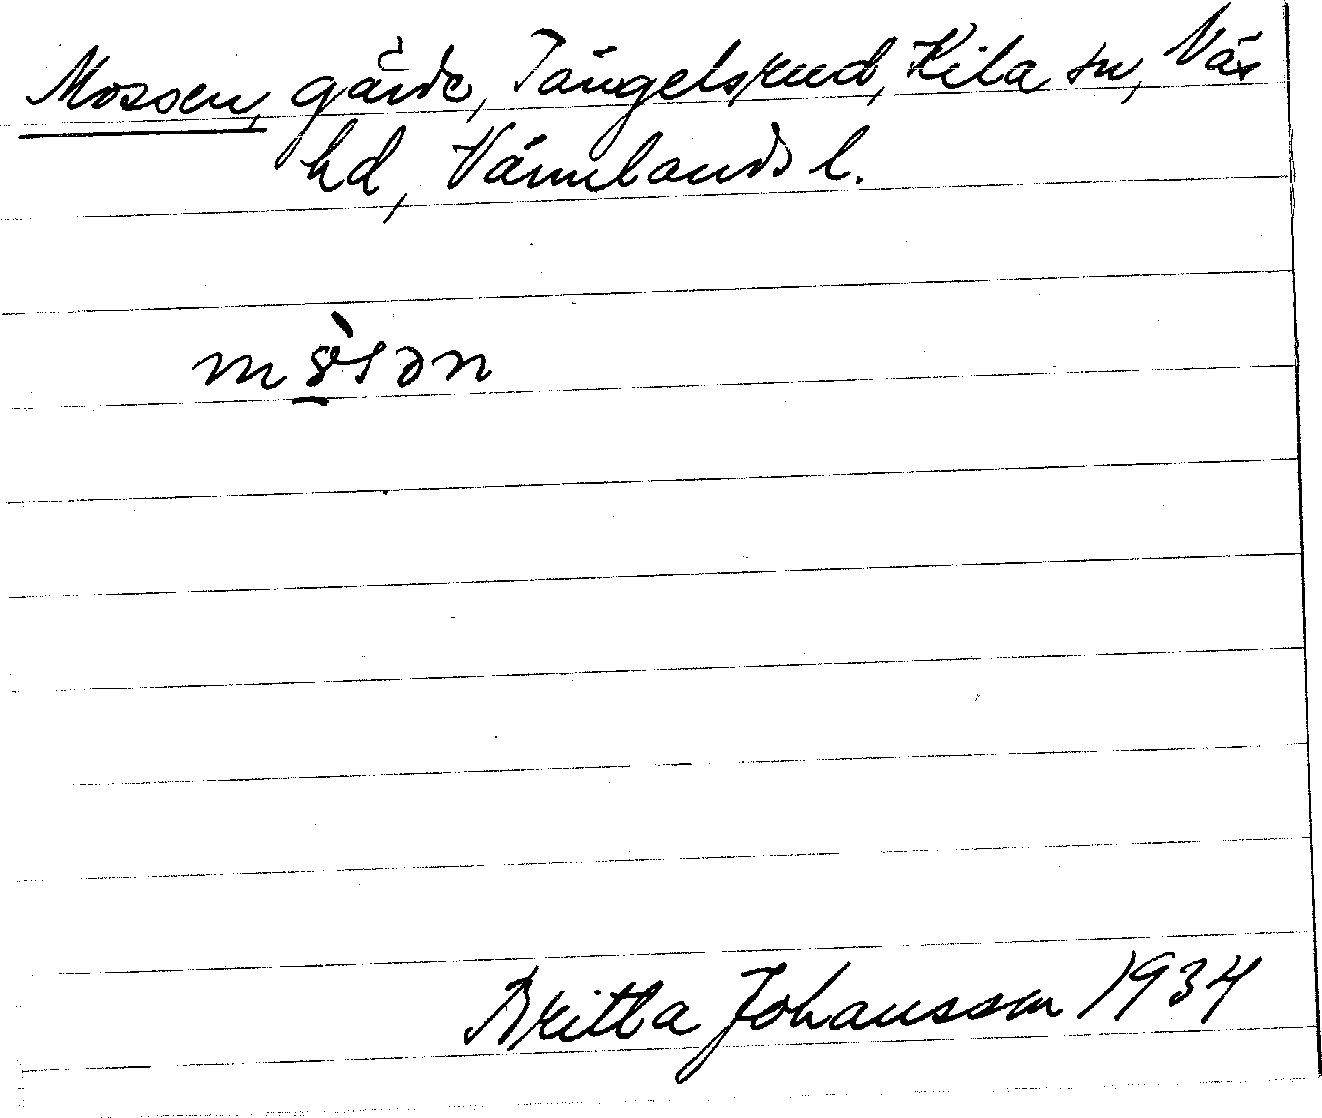 Mossen, gärde, Tängelsrud, Kila sn, Näs
hd, Värmlands l.
Britta Johansson 1934